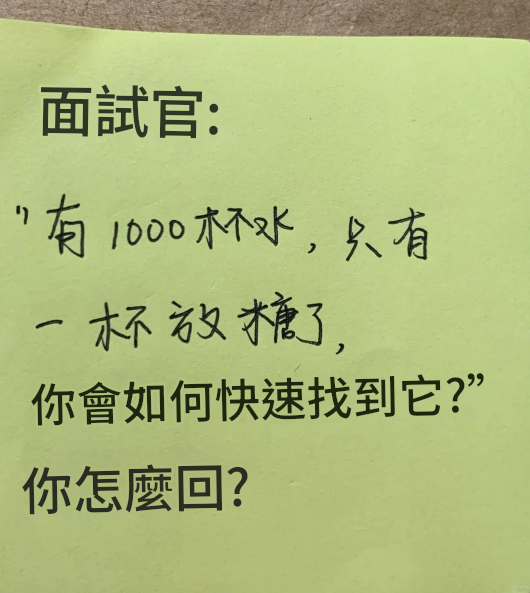 面試官:
"有1000杯水,只有
一杯放糖了,
你會如何快速找到它?”
你怎麼回?